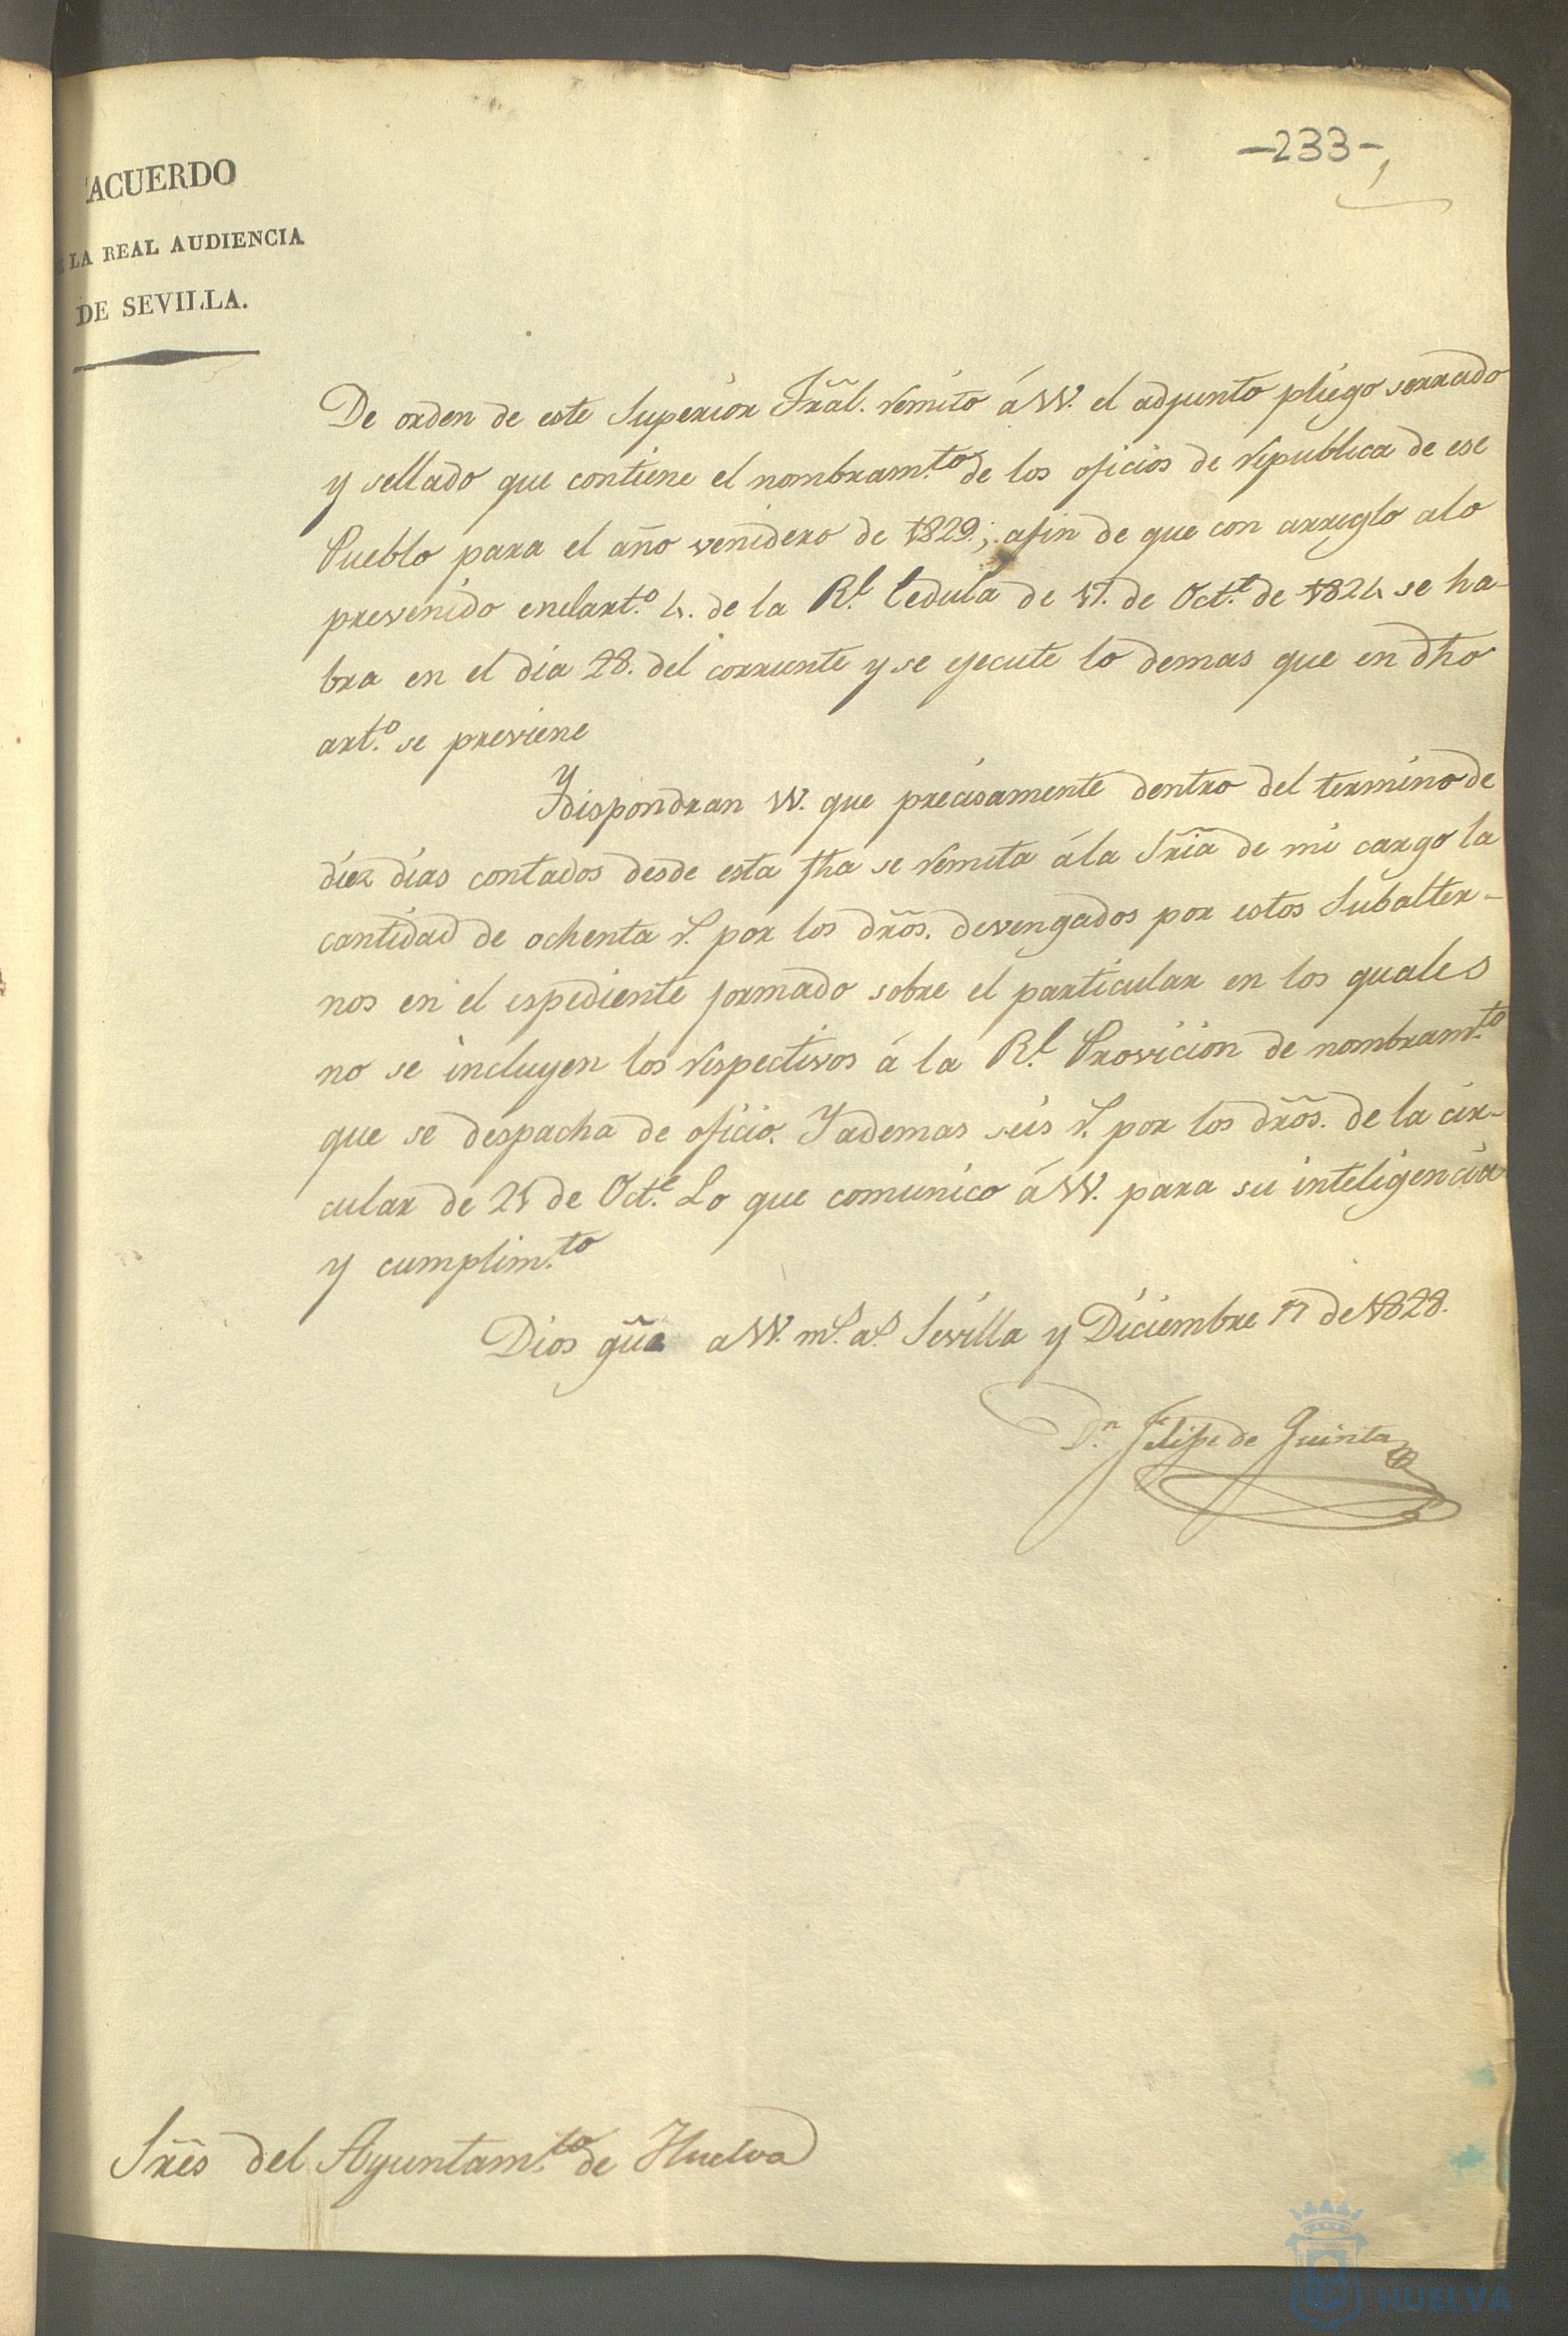 -233-
ACUERDO
LA REAL AUDIENCIA
DE SEVILLA.
De orden de este Superior Trãl. remito á VV. el adjunto pliego serrado
y sellado que contiene el nombram.to de los oficios de republica de ese
Pueblo para el año venidero de 1829; afin de que con arreglo alo
prevenido enelart.o 4. de la R.l Cedula de 17. de Oct.e de 1824 se ha-
bra en el dia 28. del corriente y se ejecute lo demas que en dho
art.o se previene
Y dispondran VV. que precisamente dentro del termino de
diez dias contados desde esta fha se remita ála Sñia de mi cargo la
cantidad de ochenta r.s por los drõs. devengados por estos Subalter-
nos en el espediente formado sobre el particular en los quales
no se incluyen los respectivos á la R.l Provicion de nombram.to
que se despacha de oficio. Y ademas seis r.s por los drõs. de la cir-
cular de 21 de Oct.e Lo que comunico á VV. para su inteligencia
y cumplim.to
Dios gũe a VV. m.s a.s Sevilla y Diciembre 17 de 1828.
D.n Felipe de Quinta
Sres del Ayuntam.to de Huelva
HUELVA